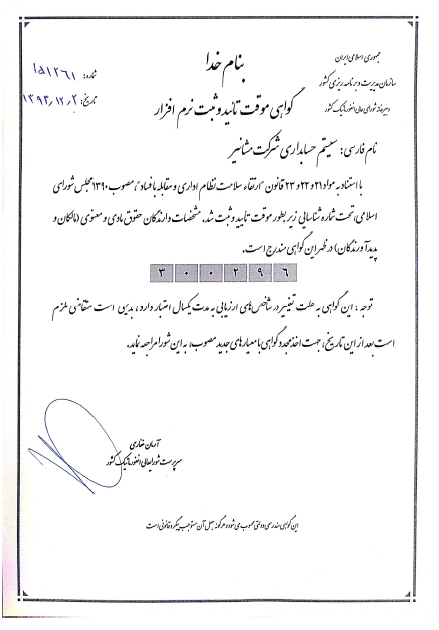 بنام خدا
جمهوری اسلامی ایران
سازمان مدیریت و برنامه ریزی کشور
دبیرخانه شورای عالی انفورماتیک کشور
شماره: ۱۵۱۲۶۱
تاریخ: ۱۳۹۳/۱۲/۲
گواهی موقت تائید و ثبت نرم افزار
نام فارسی: سیستم حسابداری شرکت مشانیر
با استناد به مواد ۲۱ و ۲۲ و ۲۳ قانون "ارتقاء سلامت نظام اداری و مقابله با فساد"، مصوب ۱۳۹۰ مجلس شورای
اسلامی، تحت شماره شناسایی زیر بطور موقت تایید و ثبت شد. مشخصات دارندگان حقوق مادی و معنوی (مالکان و
پدیدآورندگان) در ظهر این گواهی مندرج است.
۳ ۰ ۰ ۲ ۹ ۶
توجه: این گواهی به علت تغییر در شاخص های ارزیابی به مدت یکسال اعتبار دارد، بدیهی است متقاضی ملزم
است بعد از این تاریخ، جهت اخذ مجدد گواهی با معیارهای جدید مصوب، به این شورا مراجعه نماید.
آرمان غفاری
سرپرست شورایعالی انفورماتیک کشور
این گواهی سندرسمی و دولتی محسوب می شود و هرگونه جعل آن مستوجب پیگرد قانونی است